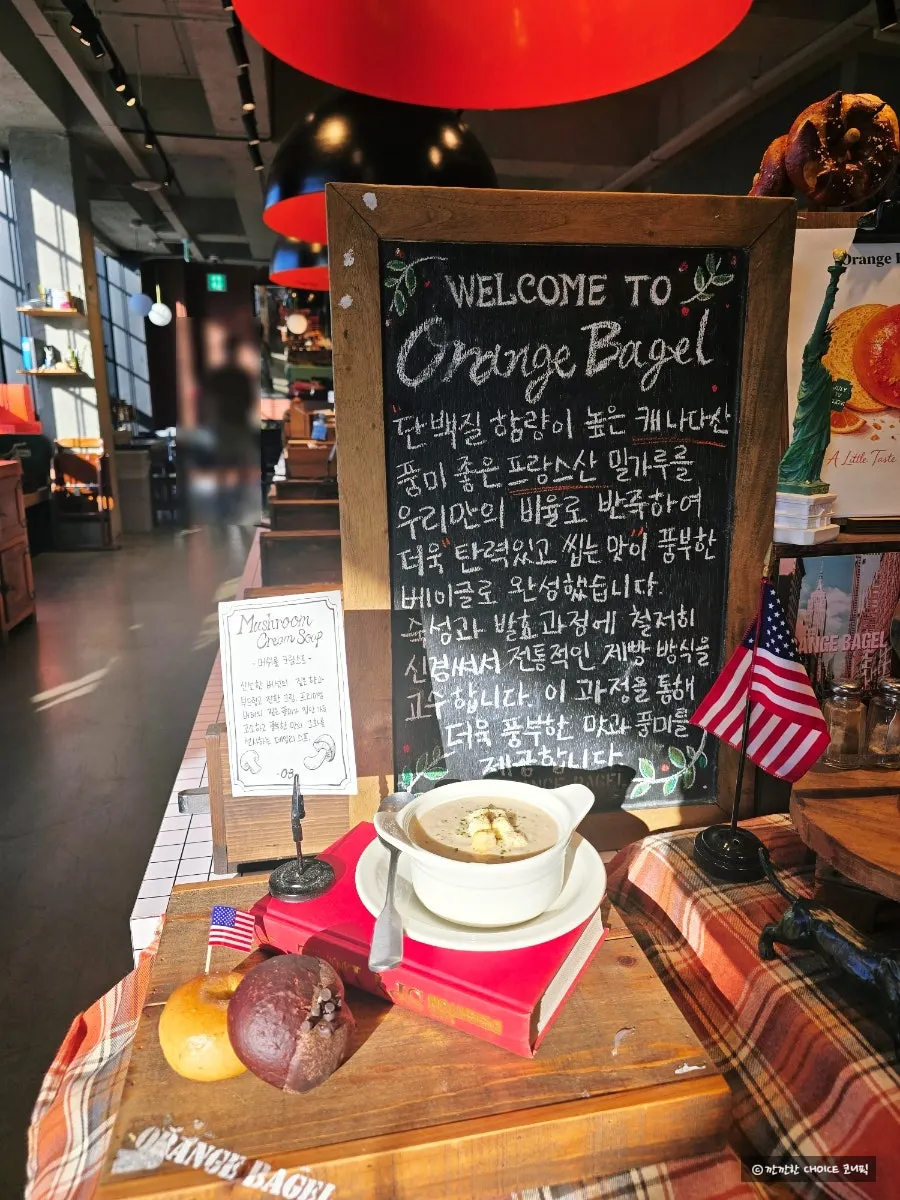 WELCOME TO
Orange Bagel
"단백질 함량이 높은 캐나다산
풍미 좋은 프랑스산 밀가루를
우리만의 비율로 반죽하여
더욱 "탄력있고 씹는 맛"이 풍부한
베이글로 완성했습니다.
숙성과 발효과정에 철저히
신경써서 전통적인 제빵 방식을
고수합니다. 이 과정을 통해
더욱 풍부한 맛과 풍미를
제공합니다
Orange B
A Little Taste
ANGE BAGEL
Mushroom
Cream Soup
-03
ORANGE BAGEL
ORANGE BAGEL
© 깐깐한 CHOICE 코니픽